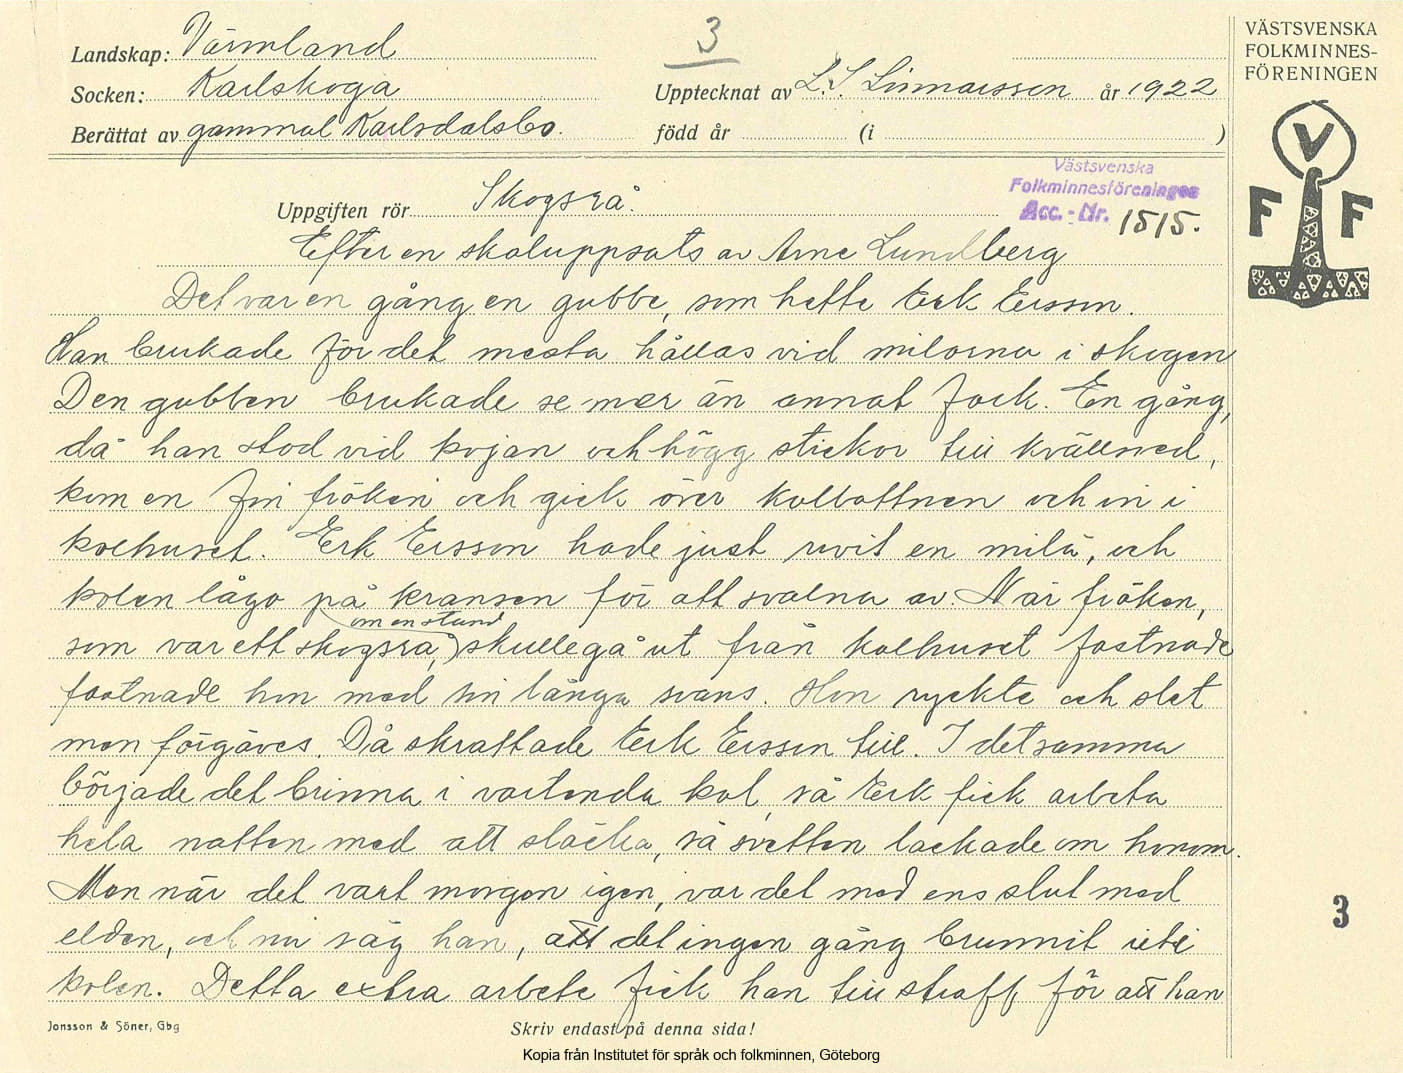 Landskap: Värmland
3
Socken: Karlskoga
Upptecknat av L. S. Linnarsson år 1922
Berättat av gammal Karlsdalsbo.
född år (i )
VÄSTSVENSKA
FOLKMINNES-
FÖRENINGEN
V
F F
Västsvenska
Folkminnesföreningen
Acc. - Nr. 1515.
Uppgiften rör Skogsrå.
Efter en skoluppsats av Arne Lundberg
Det var en gång en gubbe, som hette Erk Ersson.
Han brukade för det mesta hållas vid milorna i skogen
Den gubben brukade se mer än annat folk. En gång,
då han stod vid kojan och högg stickor till kvällsved,
kom en fin fröken och gick över kolbottnen och in i
kolhuset. Erk Ersson hade just rivit en mila, och
kolen lågo på kransen för att svalna av. När fröken,
som var ett skogsrå, om en stund skulle gå ut från kolhuset fastnade
fastnade hon med sin långa svans. Hon ryckte och slet
men förgäves. Då skrattade Erk Ersson till. I detsamma
började det brinna i vartenda kol, så Erk fick arbeta
hela natten med att släcka, så svetten lackade om honom.
Men när det vart morgon igen, var det med ens slut med
elden, och nu såg han, att det ingen gång brunnit i
kolen. Detta extra arbete fick han till straff, för att han
3
Jonsson & Söner, Gbg
Skriv endast på denna sida!
Kopia från Institutet för språk och folkminnen, Göteborg